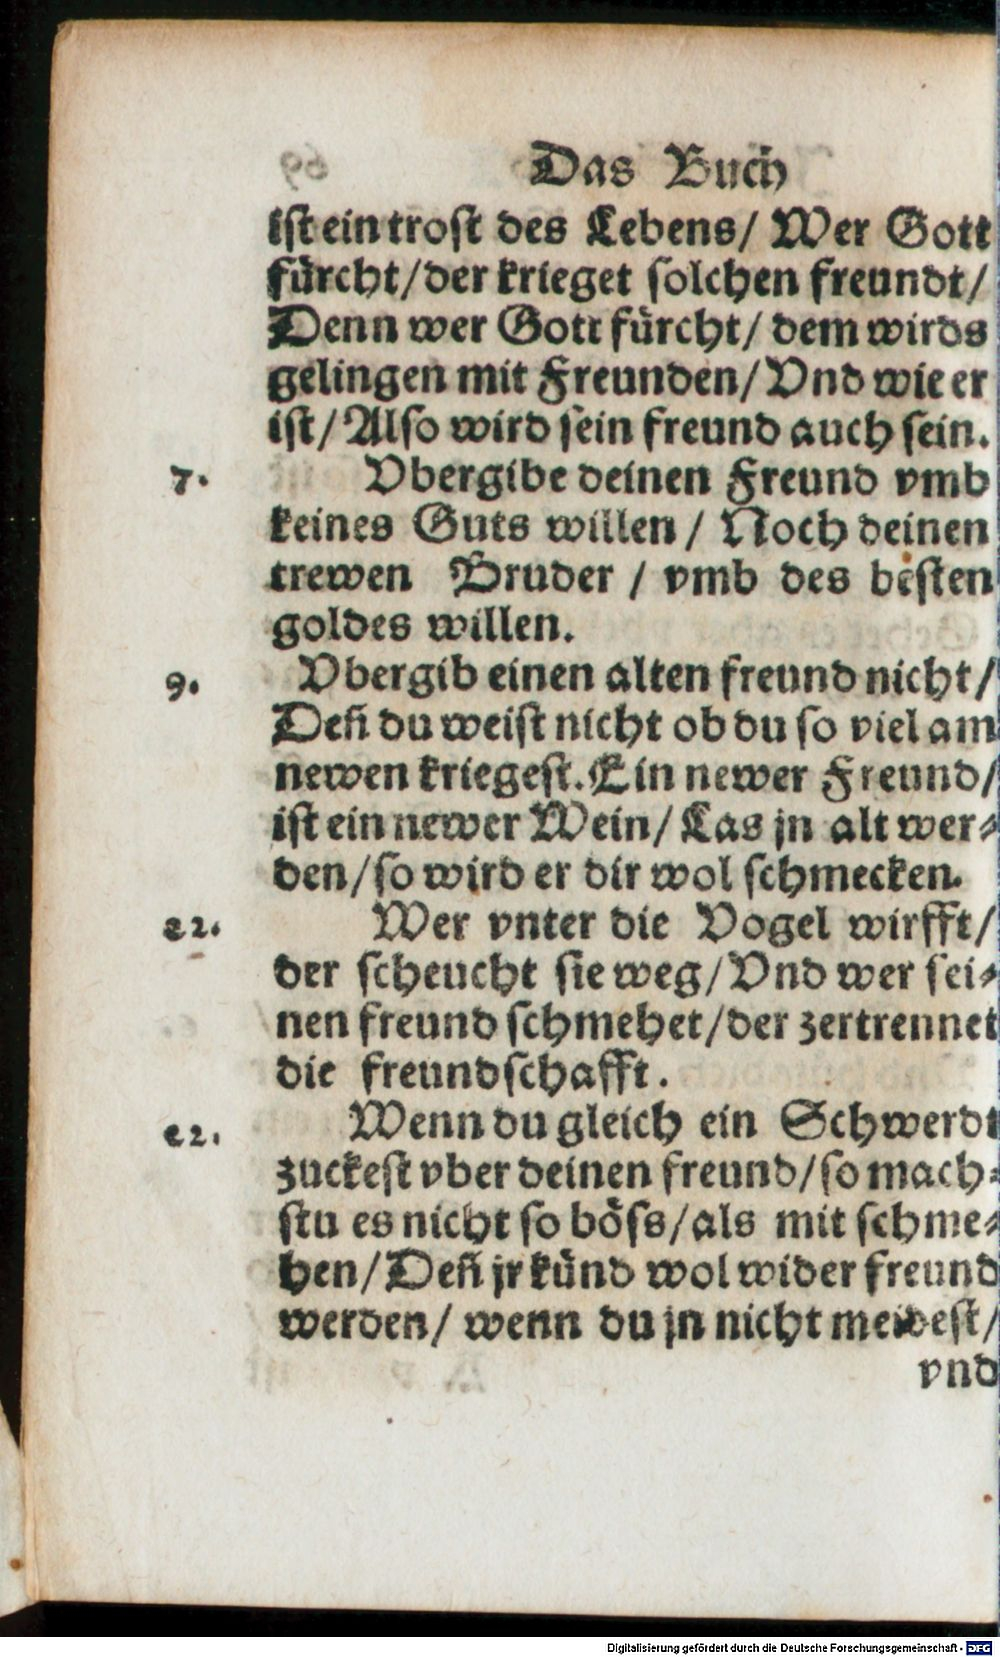 Das Buch
ist ein trost des Lebens/ Wer Gott
fürcht/ der krieget solchen freundt/
Denn wer Gott fürcht/ dem wirds
gelingen mit Freunden/ Vnd wie er
ist/ Also wird sein freund auch sein.
7. Vbergibe deinen Freund vmb
keines Guts willen / Noch deinen
trewen Bruder / vmb des besten
goldes willen.
9. Vbergib einen alten freund nicht/
Deñ du weist nicht ob du so viel am
newen kriegest. Ein newer Freund/
ist ein newer Wein/ Las jn alt wer-
den/ so wird er dir wol schmecken.
22. Wer vnter die Vogel wirfft/
der scheucht sie weg/ Vnd wer sei-
nen freund schmehet/ der zertrennet
die freundschafft.
22. Wenn du gleich ein Schwerdt
zuckest vber deinen freund/ so mach-
stu es nicht so böss/ als mit schme-
hen/ Deñ jr künd wol wider freund
werden/ wenn du jn nicht meidest/
vnd
Digitalisierung gefördert durch die Deutsche Forschungsgemeinschaft - DFG